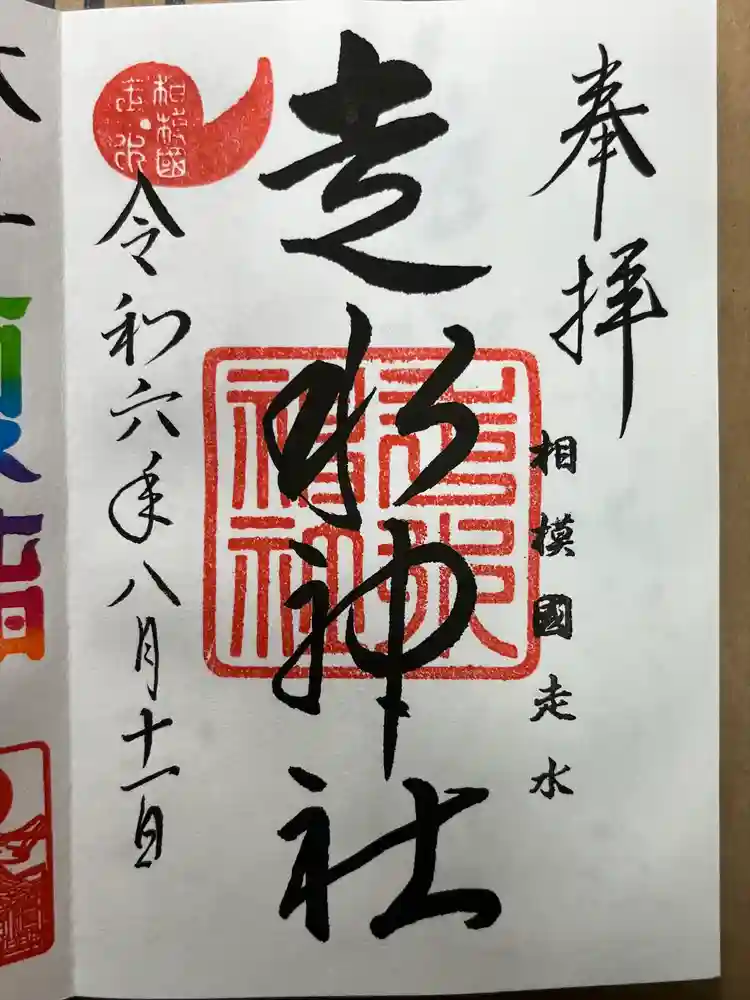 奉拝
相模國走水
走水神社
走水神社
相模國走水
令和六年八月十一日